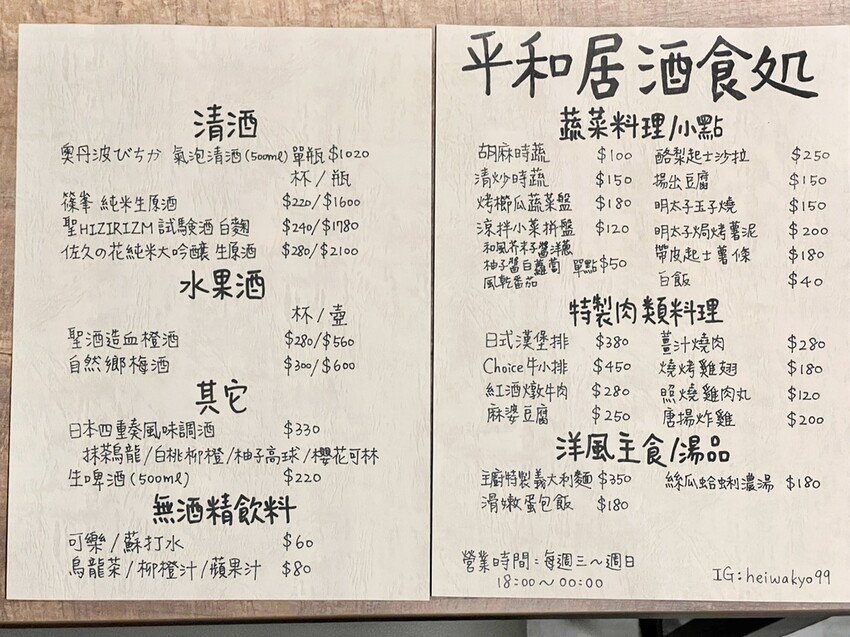 清酒
奧丹波びちか 氣泡清酒(500ml)單瓶 $1020
杯/瓶
篠峯 純米生原酒 $220/$1600
聖HIZIRIZM 試験酒 白麴 $240/$1780
佐久の花純米大吟釀 生原酒 $280/$2100
水果酒
杯/壺
聖酒造血橙酒 $280/$560
自然鄉梅酒 $300/$600
其它
日本四重奏風味調酒 $330
抹茶烏龍/白桃柳橙/柚子高球/櫻花可林
生啤酒(500ml) $220
無酒精飲料
可樂/蘇打水 $60
烏龍茶/柳橙汁/蘋果汁 $80
平和居酒食処
蔬菜料理/小點
胡麻時蔬 $100 酪梨起士沙拉 $250
清炒時蔬 $150 揚出豆腐 $150
烤櫛瓜蔬菜盤 $180 明太子玉子燒 $150
涼拌小菜拼盤 $120 明太子焗烤薯泥 $200
和風芥末子醬洋蔥
柚子醬白蘿蔔 單點$50 帶皮起士薯條 $180
風乾番茄 白飯 $40
特製肉類料理
日式漢堡排 $380 薑汁燒肉 $280
Choice牛小排 $450 燒烤雞翅 $180
紅酒燉牛肉 $280 照燒雞肉丸 $120
麻婆豆腐 $250 唐揚炸雞 $200
洋風主食/湯品
主廚特製義大利麵 $350 絲瓜蛤蜊濃湯 $180
滑嫩蛋包飯 $180
營業時間:每週三~週日
18:00~00:00
IG:heiwakyo99